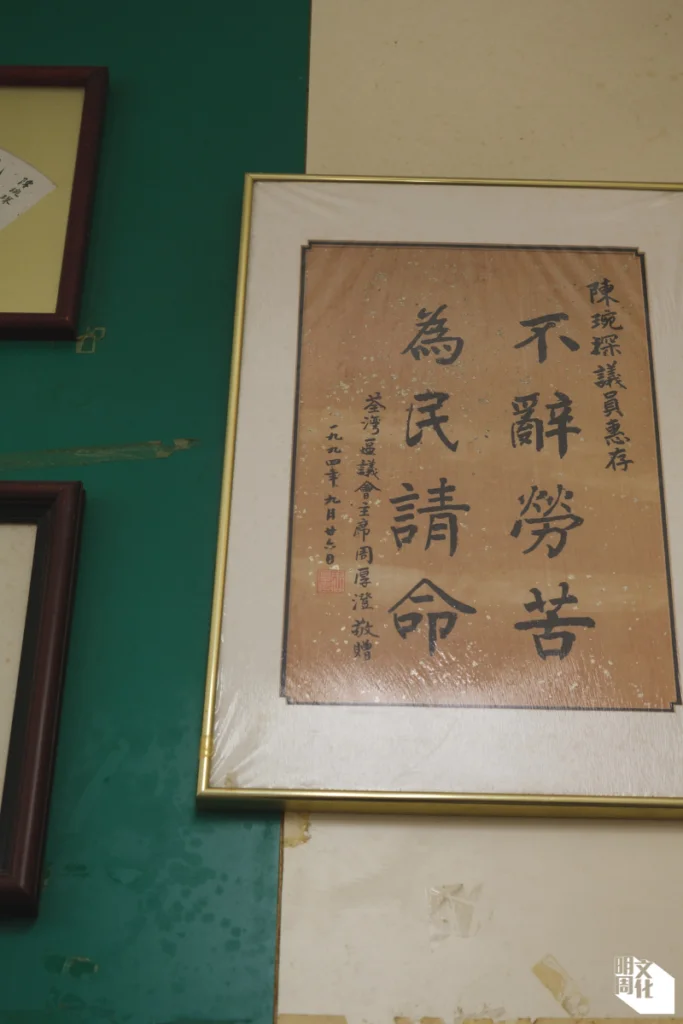 陳琬琛議員惠存
不辭勞苦
為民請命
荃灣區議會主席周厚澄敬贈
一九九四年九月廿六日
陳琬琛
明周文化